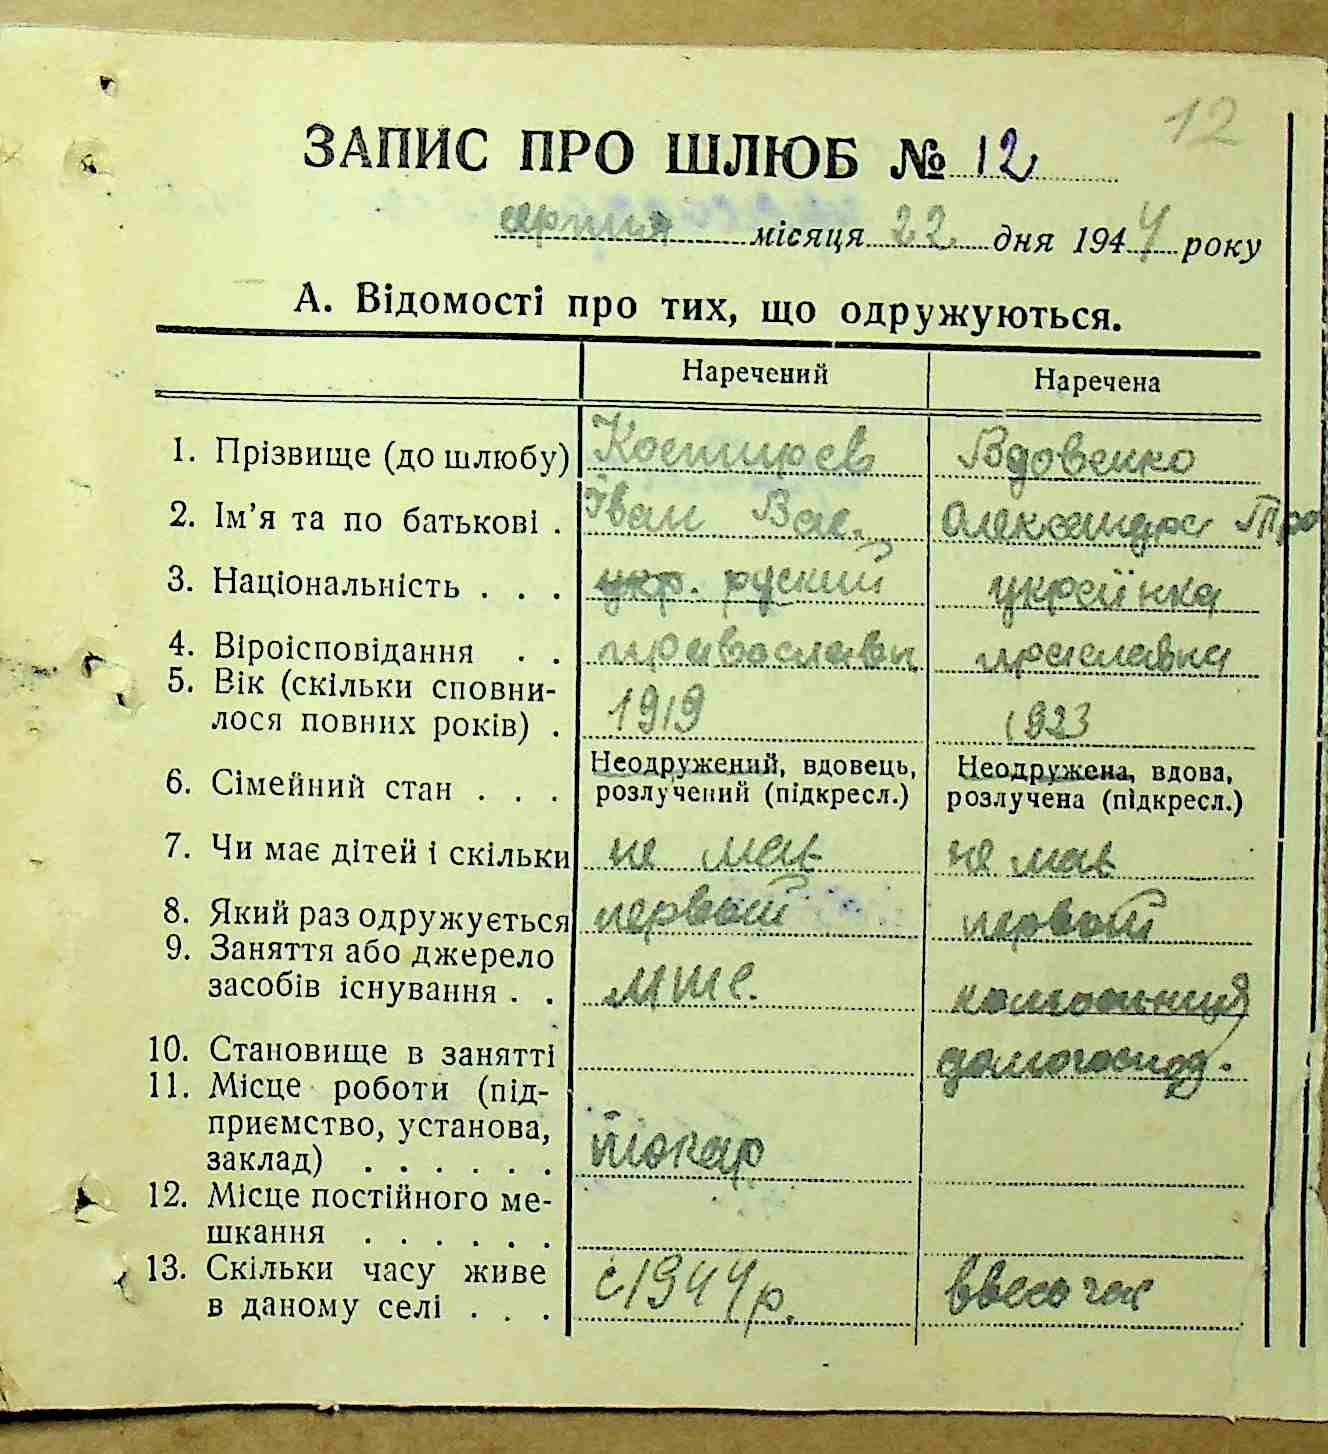 12
ЗАПИС ПРО ШЛЮБ № 12
серпня місяця 22 дня 1944 року
А. Відомості про тих, що одружуються.
Наречений Наречена
1. Прізвище (до шлюбу) Костирєв Вдовенко
2. Ім'я та по батькові . Іван Вас. Олександра Тро
3. Національність . . . укр. руский українка
4. Віроісповідання . . православн праславна
5. Вік (скільки сповни-
лося повних років) . 1919 1923
6. Сімейний стан . . . Неодружений, вдовець, Неодружена, вдова,
розлучений (підкресл.) розлучена (підкресл.)
7. Чи має дітей і скільки не має не має
8. Який раз одружується первый первый
9. Заняття або джерело
засобів існування . . МТС. колгосниця
10. Становище в занятті домогоспод.
11. Місце роботи (під-
приємство, установа,
заклад) . . . . . . токар
12. Місце постійного ме-
шкання . . . . . .
13. Скільки часу живе
в даному селі . . . с 1944 р. ввесь час